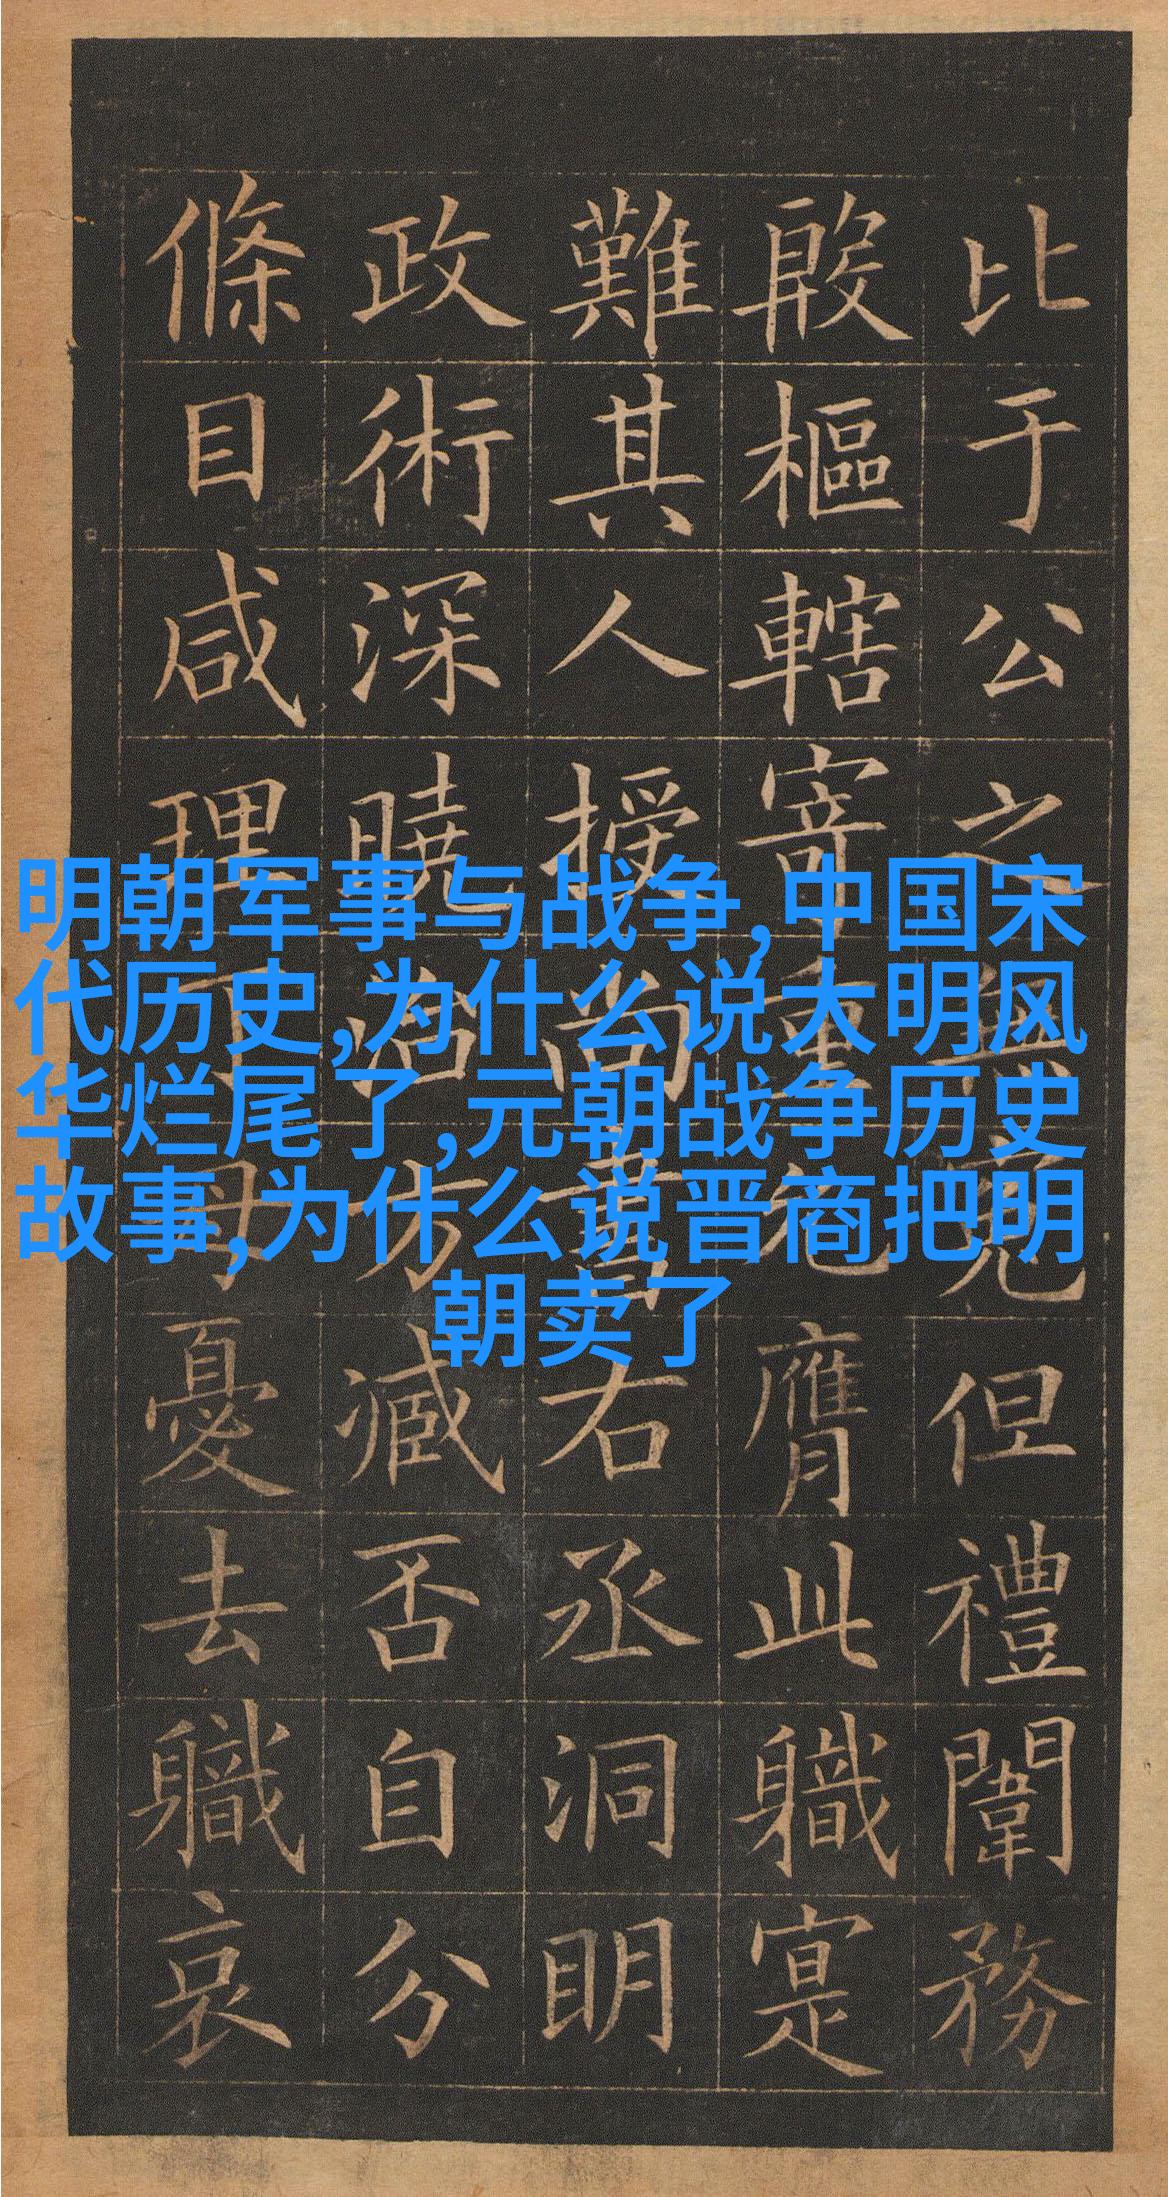 比于公之但禮闈務
殷樞轄寄重膺此職寔
難其人授尚書右丞洞明
政術深曉治方臧否自分
條目咸理丁母憂去職哀
明朝军事与战争,中国宋
代历史,为什么说大明风
华烂尾了,元朝战争历史
故事,为什么说晋商把明
朝卖了